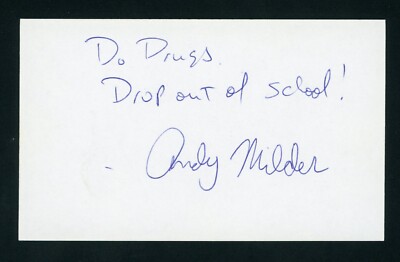 Do Drugs.
Drop out of school!
- Andy Milder